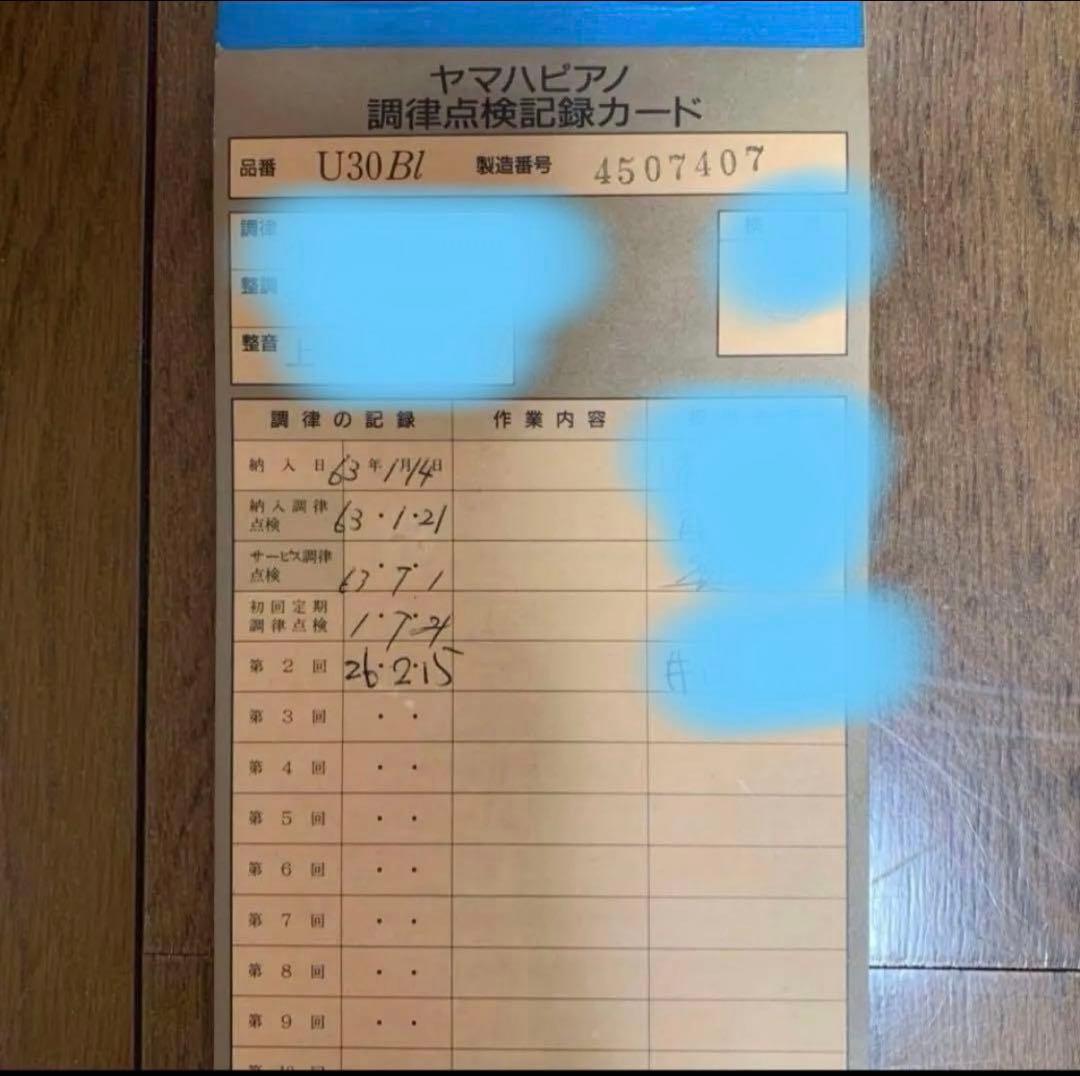 ヤマハピアノ
調律点検記録カード
品番 U30Bl 製造番号 4507407
調律
整調
整音 上
調律の記録 作業内容
納入日 63年1月14日
納入調律点検 63・1・21
サービス調律点検 63・7・1
初回定期調律点検 1・7・21
第2回 26・2・15
第3回 ・・
第4回 ・・
第5回 ・・
第6回 ・・
第7回 ・・
第8回 ・・
第9回 ・・